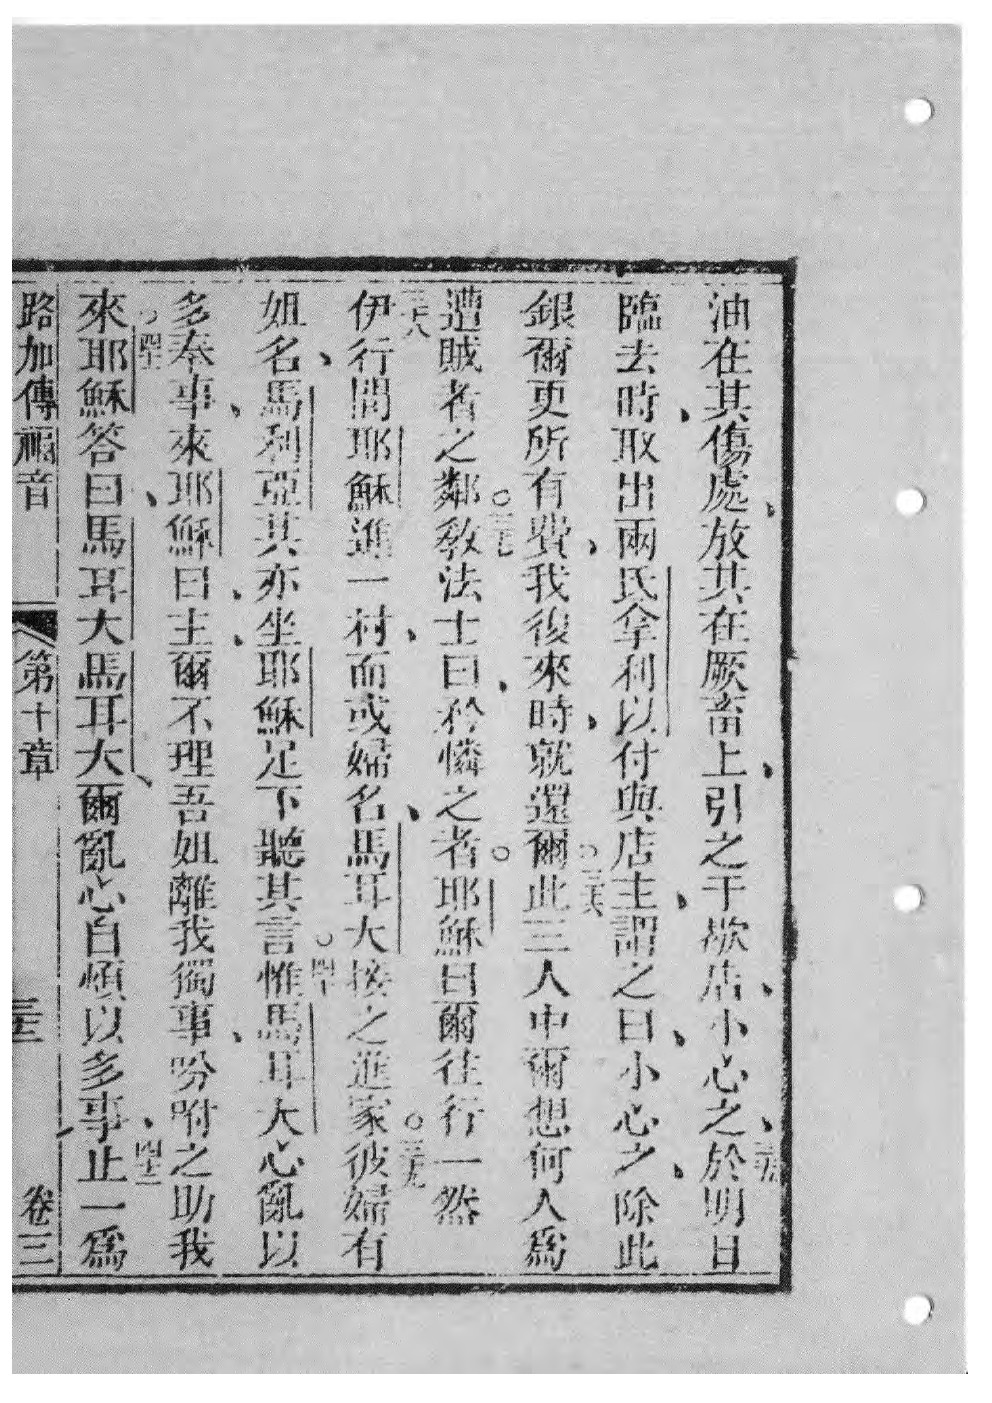 油在其傷處、放其在厥畜上、引之于歇店、小心之、三五於明日
臨去時、取出兩氏拿利以付與店主、謂之曰、小心之、除此
銀爾更所有費、我復來時、就還爾。三六此三人中爾想何人為
遭賊者之鄰。三七教法士曰、矜憐之者。耶穌曰爾往行一然
三八伊行間耶穌進一村、而或婦名、馬耳大接之進家。三九彼婦有
姐名、馬利亞其亦坐耶穌足下聽其言。四十惟馬耳大心亂以
多奉事、來耶穌曰、主、爾不理吾姐離我獨事、吩咐之助我
來。四一耶穌答曰、馬耳大馬耳大、爾亂心自煩以多事、四二止一為
路加傳福音 第十章 三五 卷三